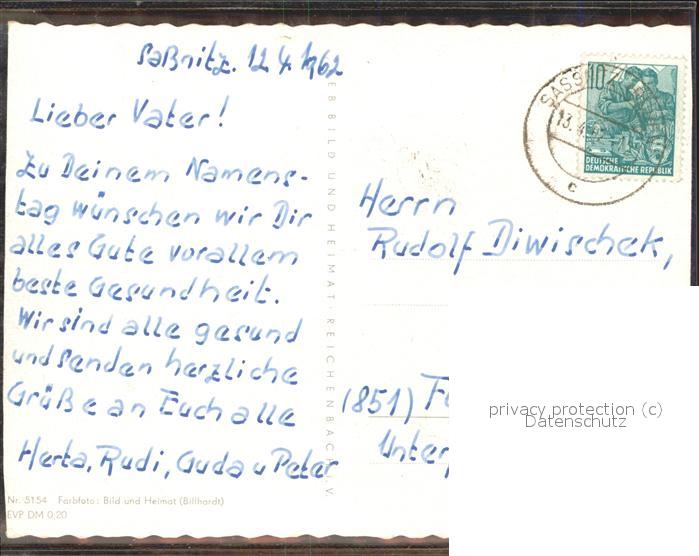 Saßnitz. 12. 4. 1962
Lieber Vater!
Zu Deinem Namens-
tag wünschen wir Dir
alles Gute vorallem
beste Gesundheit.
Wir sind alle gesund
und senden herzliche
Grüße an Euch alle
Herta, Rudi, Guda u Peter
Nr. 5154 Farbfoto: Bild und Heimat (Billhardt)
EVP DM 0,20
BILD UND HEIMAT · REICHENBACH i. V.
SASSNITZ
13. 4.
c
10
DEUTSCHE
DEMOKRATISCHE REPUBLIK
Herrn
Rudolf Diwischek,
(851)
Unter
privacy protection (c)
Datenschutz